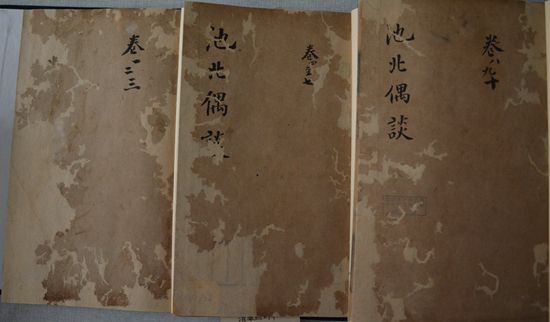 卷一二三
池北偶談
卷四至七
池北偶談
卷八九十